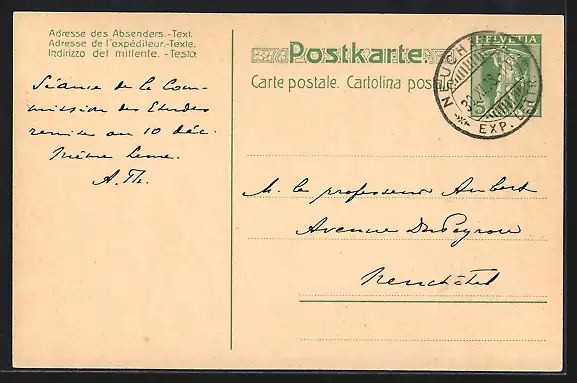 Adresse des Absenders.-Text.
Adresse de l'expéditeur.-Texte.
Indirizzo del mittente. -Testo.
Postkarte
Carte postale. Cartolina postale
HELVETIA
5
NEUCH
EXP. LETTR.
Séance de la Com-
mission des Etudes
remise au 10 déc.
Même heure.
A. Th.
M. le professeur Aubert
Avenue DuPeyrou
Neuchâtel